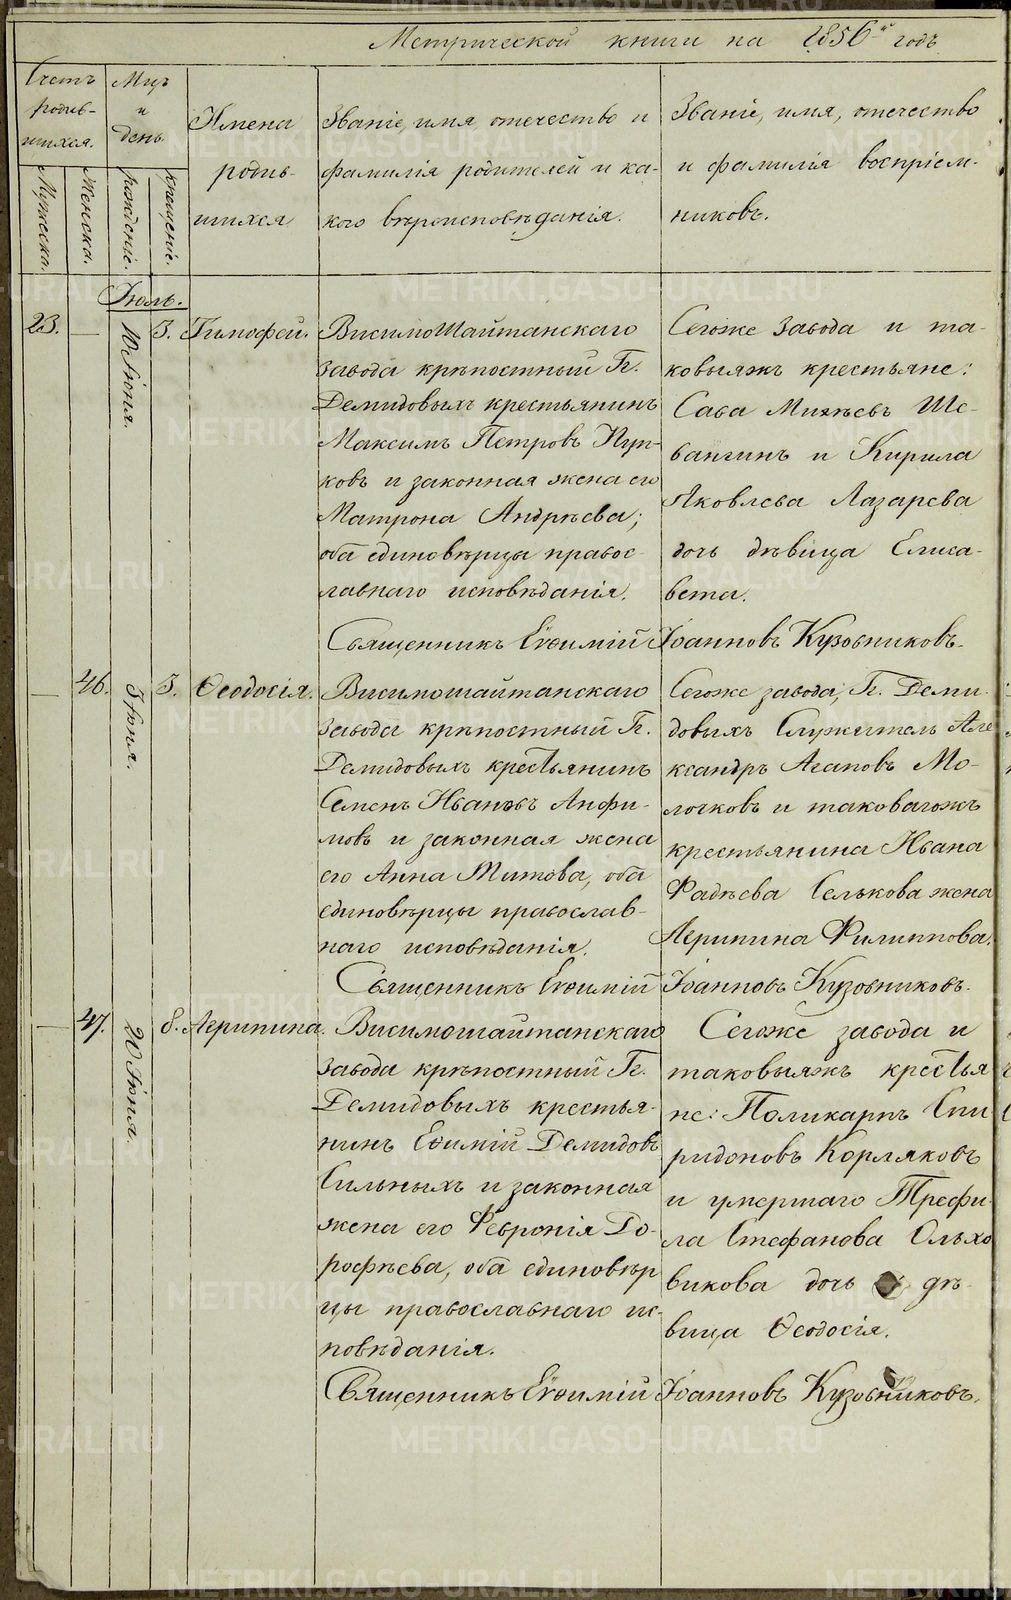 Метрической книги на 1856й годъ
Счетъ родив-шихся.
Мужеска.
Женска.
Мцъ и день.
рожденіе.
крещеніе.
Имена
родив-
шихся
Званіе, имя, отечество и
фамилія родителей и ка-
кого вѣроисповѣданія.
Званіе, имя, отечество
и фамилія воспріем-
никовъ.
Іюль.
23.
—
10 Іюня.
3.
Тимофей.
ВисимоШайтанскаго
завода крѣпостный Гг.
Демидовыхъ крестьянинъ
Максимъ Петровъ Пуп-
ковъ и законная жена его
Матрона Андрѣева;
оба единовѣрцы правос-
лавнаго исповѣданія.
Сегоже завода и та-
ковыяжъ крестьяне:
Сава Михѣевъ Ше-
вангинъ и Кирила
Яковлева Лазарева
дочь дѣвица Елиса-
вета.
Священникъ Евѳимій Іоанновъ Кузовниковъ.
—
46.
3 Іюня.
3.
Ѳеодосія.
Висимошайтанскаго
завода крѣпостный Гг.
Демидовыхъ крестьянинъ
Семенъ Ивановъ Анфи-
мовъ и законная жена
его Анна Титова, оба
единовѣрцы православ-
наго исповѣданія.
Сегоже завода, Гг. Деми-
довыхъ Служитель Але
ксандръ Агаповъ Мо-
лотковъ и таковагожъ
крестьянина Ивана
Фадѣева Селькова жена
Агрипина Филиппова.
Священникъ Евѳимій Іоанновъ Кузовниковъ.
—
47.
20 Іюня.
8.
Агрипина.
Висимошайтанскаго
завода крѣпостный Гг.
Демидовыхъ крестья-
нинъ Еѳимій Демидовъ
Сильныхъ и законная
жена его Февронія До-
рофѣева, оба единовѣр
цы православнаго ис-
повѣданія.
Сегоже завода и
таковыяжъ крестья
не: Поликарпъ Спи
ридоновъ Корляковъ
и умершаго Трефи-
ла Стефанова Ольхо
викова дочь дѣ-
вица Ѳеодосія.
Священникъ Евѳимій Іоанновъ Кузовниковъ.
METRIKI.GASO-URAL.RU